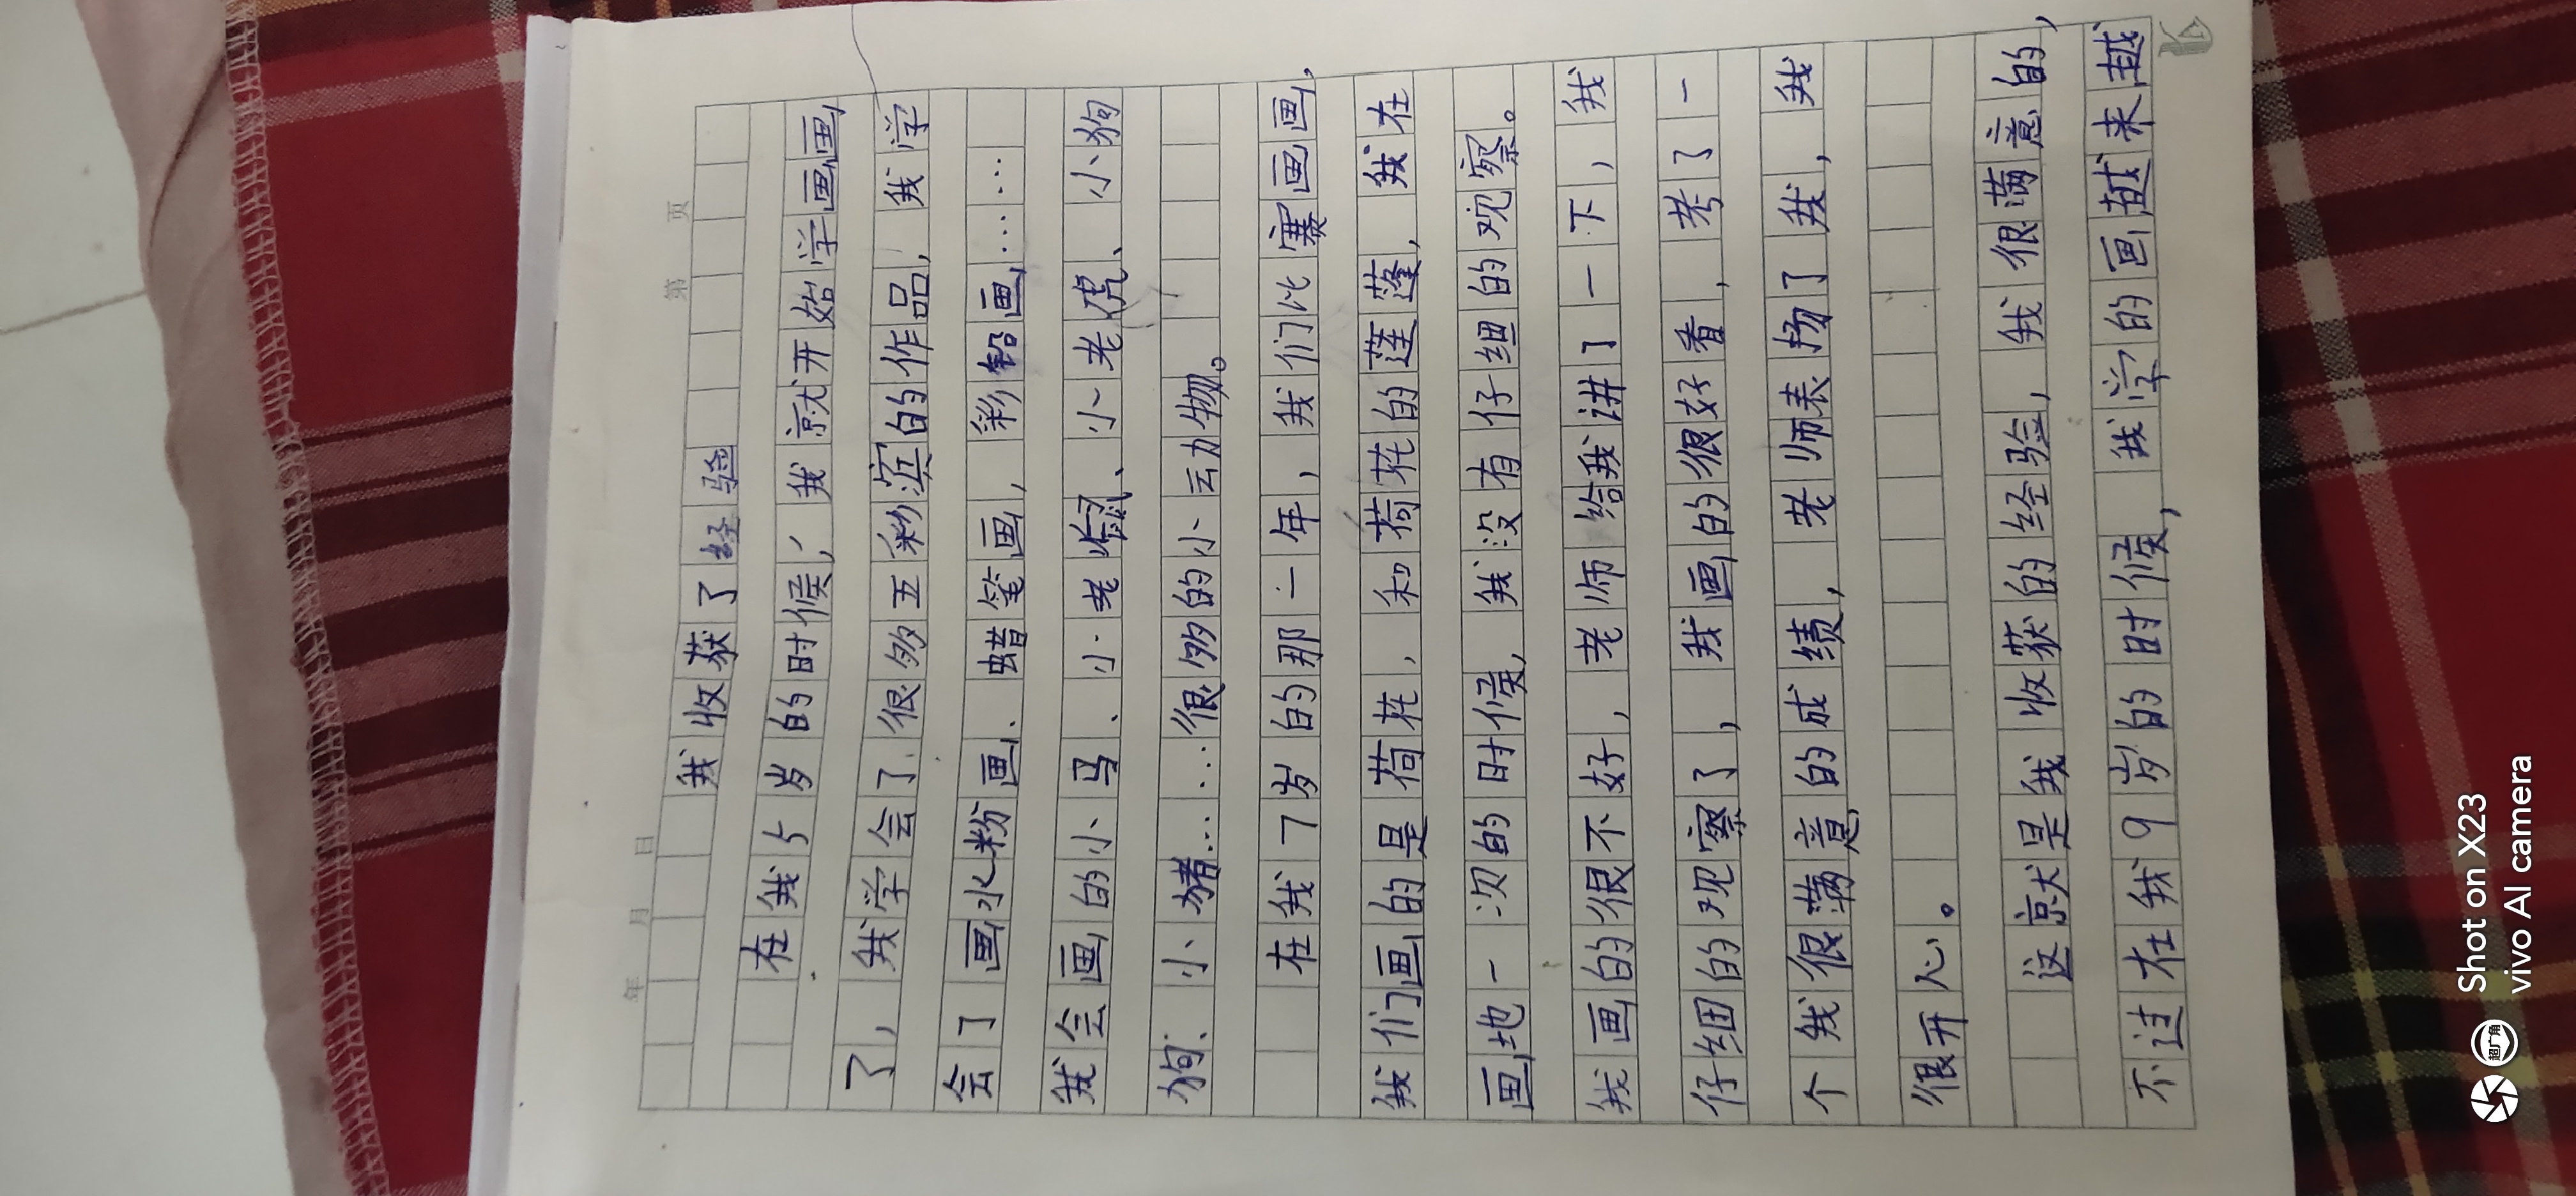 年 月 日 第 页
我收获了经验
在我5岁的时候,我就开始学画画
了,我学会了很多五彩滨的作品,我学
会了画水粉画、蜡笔画,彩铅画……
我会画的小马、小老鼠、小老虎、小狗
狗、小猪……很多的小动物。
在我7岁的那一年,我们比赛画画,
我们画的是荷花,和荷花的莲蓬,我在
画地一次的时候,我没有仔细的观察。
我画的很不好,老师给我讲了一下,我
仔细的观察了,我画的很好看,考了一
个我很满意的成绩,老师表扬了我,我
很开心。
这就是我收获的经验,我很满意的,
不过在我9岁的时候,我学的画越来越
Shot on X23
vivo AI camera
超广角